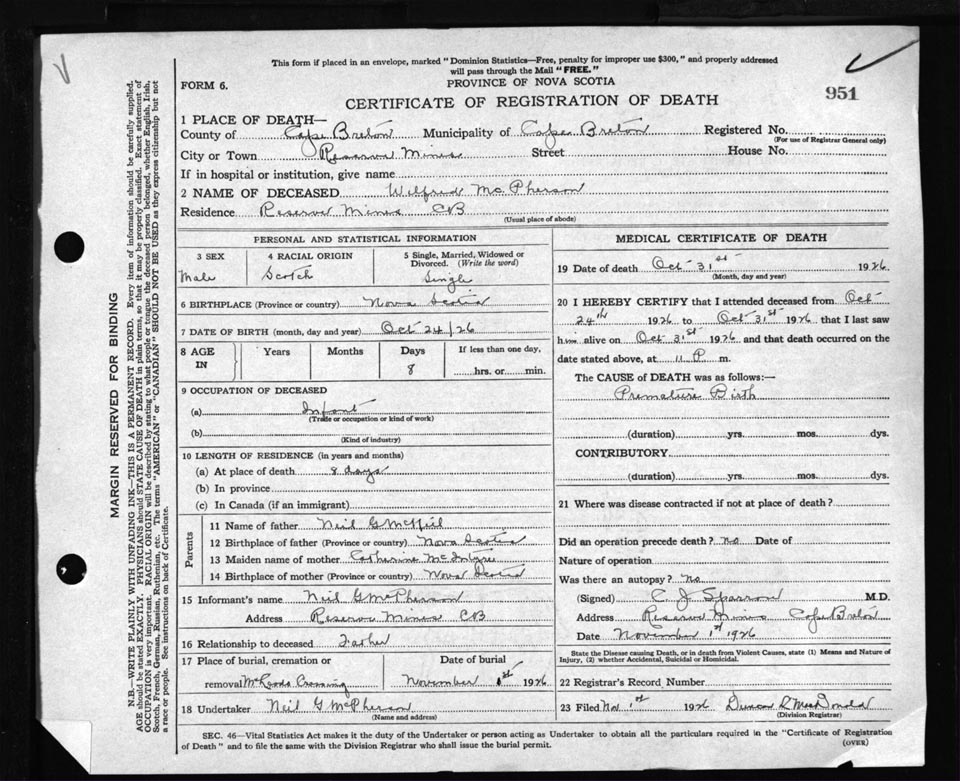 This form if placed in an envelope, marked "Dominion Statistics—Free, penalty for improper use $300," and properly addressed
will pass through the Mail "FREE."
FORM 6.
PROVINCE OF NOVA SCOTIA
951
CERTIFICATE OF REGISTRATION OF DEATH
1 PLACE OF DEATH—
County of Cape Breton Municipality of Cape Breton Registered No.
(For use of Registrar General only)
City or Town Reserve Mines Street House No.
If in hospital or institution, give name
2 NAME OF DECEASED Wilfred McPherson
Residence Reserve Mines CB
(Usual place of abode)
PERSONAL AND STATISTICAL INFORMATION
3 SEX
Male
4 RACIAL ORIGIN
Scotch
5 Single, Married, Widowed or
Divorced. (Write the word)
Single
6 BIRTHPLACE (Province or country) Nova Scotia
7 DATE OF BIRTH (month, day and year) Oct 24/26
8 AGE
IN
Years
Months
Days
8
If less than one day,
hrs. or min.
9 OCCUPATION OF DECEASED
(a) Infant
(Trade or occupation or kind of work)
(b)
(Kind of industry)
10 LENGTH OF RESIDENCE (in years and months)
(a) At place of death 8 days
(b) In province
(c) In Canada (if an immigrant)
Parents
11 Name of father Neil G
12 Birthplace of father (Province or country) Nova Scotia
13 Maiden name of mother Catherine McIntyre
14 Birthplace of mother (Province or country) Nova Scotia
15 Informant's name Neil G McPherson
Address Reserve Mines CB
16 Relationship to deceased Father
17 Place of burial, cremation or
removal Crossing
Date of burial
November 1st 1926
18 Undertaker Neil G McPherson
(Name and address)
MEDICAL CERTIFICATE OF DEATH
19 Date of death Oct 31st 1926
(Month, day and year)
20 I HEREBY CERTIFY that I attended deceased from Oct
24th 1926 to Oct 31st 1926 that I last saw
him alive on Oct 31st 1926 and that death occurred on the
date stated above, at 11 P m.
The CAUSE of DEATH was as follows:—
Premature Birth
(duration) yrs. mos. dys.
CONTRIBUTORY
(duration) yrs. mos. dys.
21 Where was disease contracted if not at place of death?
Did an operation precede death? no Date of
Nature of operation
Was there an autopsy? no
(Signed) C J Sparrow M.D.
Address Reserve Mines Cape Breton
Date November 1st 1926
State the Disease causing Death, or in death from Violent Causes, state (1) Means and Nature of
Injury, (2) whether Accidental, Suicidal or Homicidal.
22 Registrar's Record Number
23 Filed Nov 1st 1926 Duncan R MacDonald
(Division Registrar)
SEC. 46—Vital Statistics Act makes it the duty of the Undertaker or person acting as Undertaker to obtain all the particulars required in the "Certificate of Registration
of Death" and to file the same with the Division Registrar who shall issue the burial permit.
(OVER)
MARGIN RESERVED FOR BINDING
N.B.—WRITE PLAINLY WITH UNFADING INK—THIS IS A PERMANENT RECORD. Every item of information should be carefully supplied.
AGE should be stated EXACTLY. PHYSICIANS should STATE CAUSE OF DEATH in plain terms, so that it may be properly classified. Exact statement of
OCCUPATION is very important. RACIAL ORIGIN will be described by stating to what people or tongue the deceased person belonged, whether English, Irish,
Scotch, French, German, Russian, Ruthenian, etc. The terms "AMERICAN" or "CANADIAN" SHOULD NOT BE USED as they express citizenship but not
a race or people. See instructions on back of Certificate.